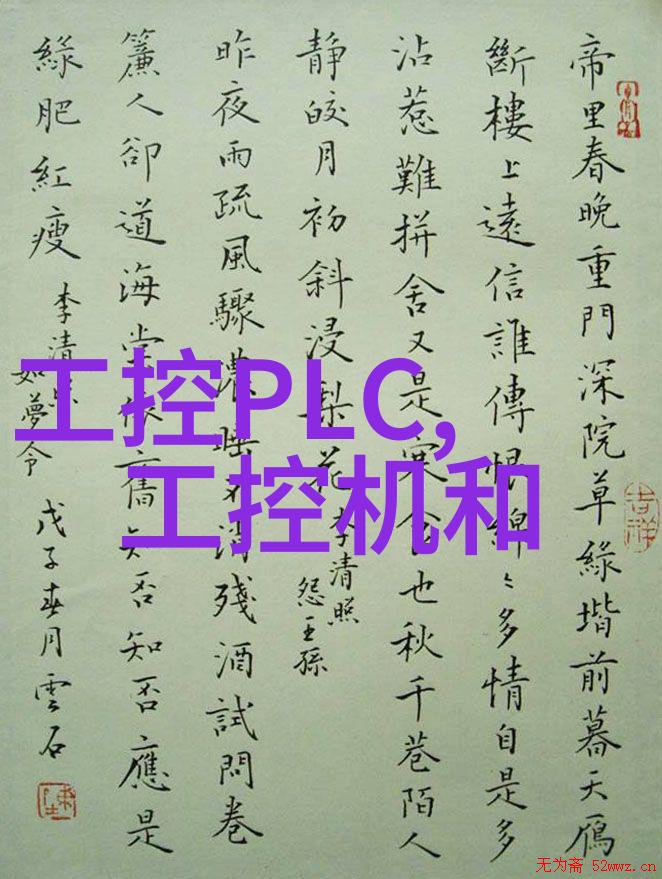 帝里春晚重門深院草綠堦前暮天鴈
斷樓上遠信誰傳恨綿〻多情自是多
沾惹難拼舍又是寒食也秋千巷陌人
静皎月初斜浸梨花
李清照
怨王孫
昨夜雨疏風驟濃睡不消殘酒試問卷
簾人卻道海棠依舊知否知否應是
綠肥紅瘦
李清照
如夢令
戊子春月雲石
吉祥
工控PLC,
工控机和
无为斋 52wwz.cn